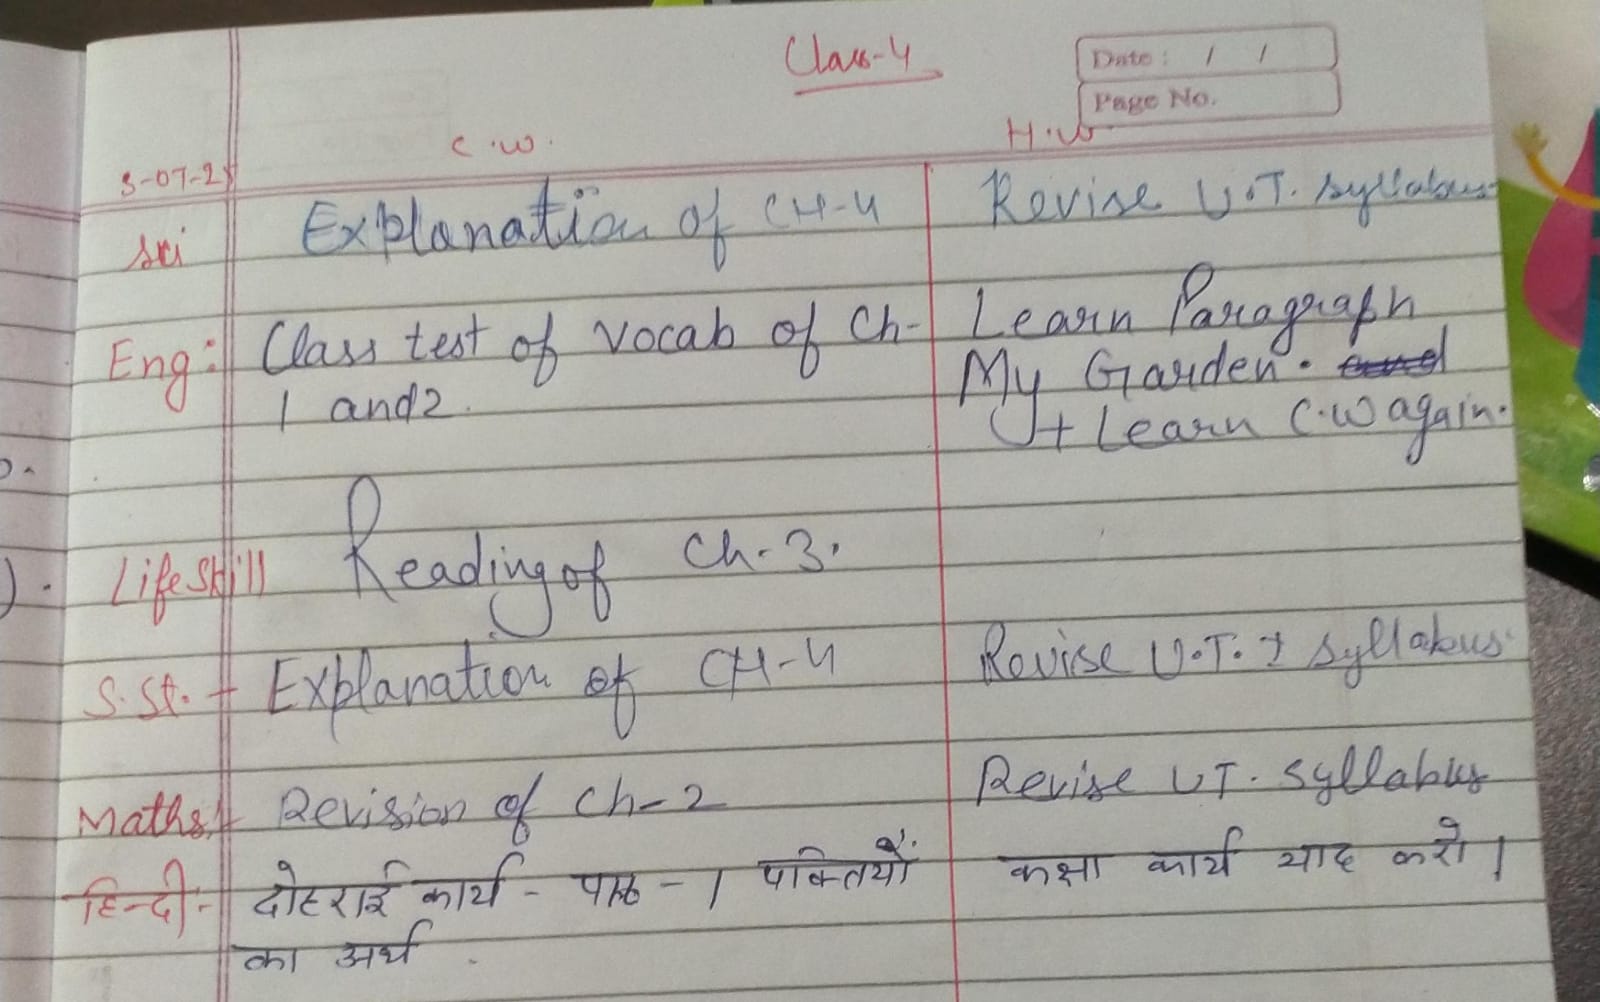 Class-4
Date : / /
Page No.
C.W. H.W
3-07-25
Sci Explanation of CH-4 Revise U.T. syllabus
Eng: Class test of vocab of Ch- Learn Paragraph
1 and 2. My Garden.
+ Learn C.W again.
Life Skill Reading of Ch-3.
S.St. - Explanation of CH-4 Revise U.T. 1 syllabus
Maths:- Revision of Ch-2 Revise UT. syllabus
हिन्दी:- दोहराई कार्य - पाठ - 1 पंक्तियों कक्षा कार्य याद करो।
का अर्थ.